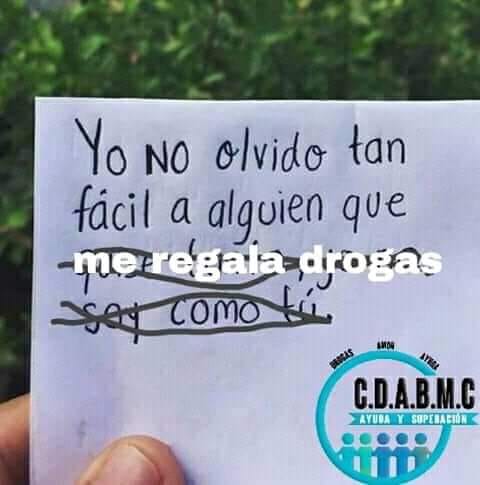 Yo NO olvido tan
fácil a alguien que
me regala drogas
soy como tú.
DROGAS AMOR AYUDA
C.D.A.B.M.C
AYUDA Y SUPERACIÓN